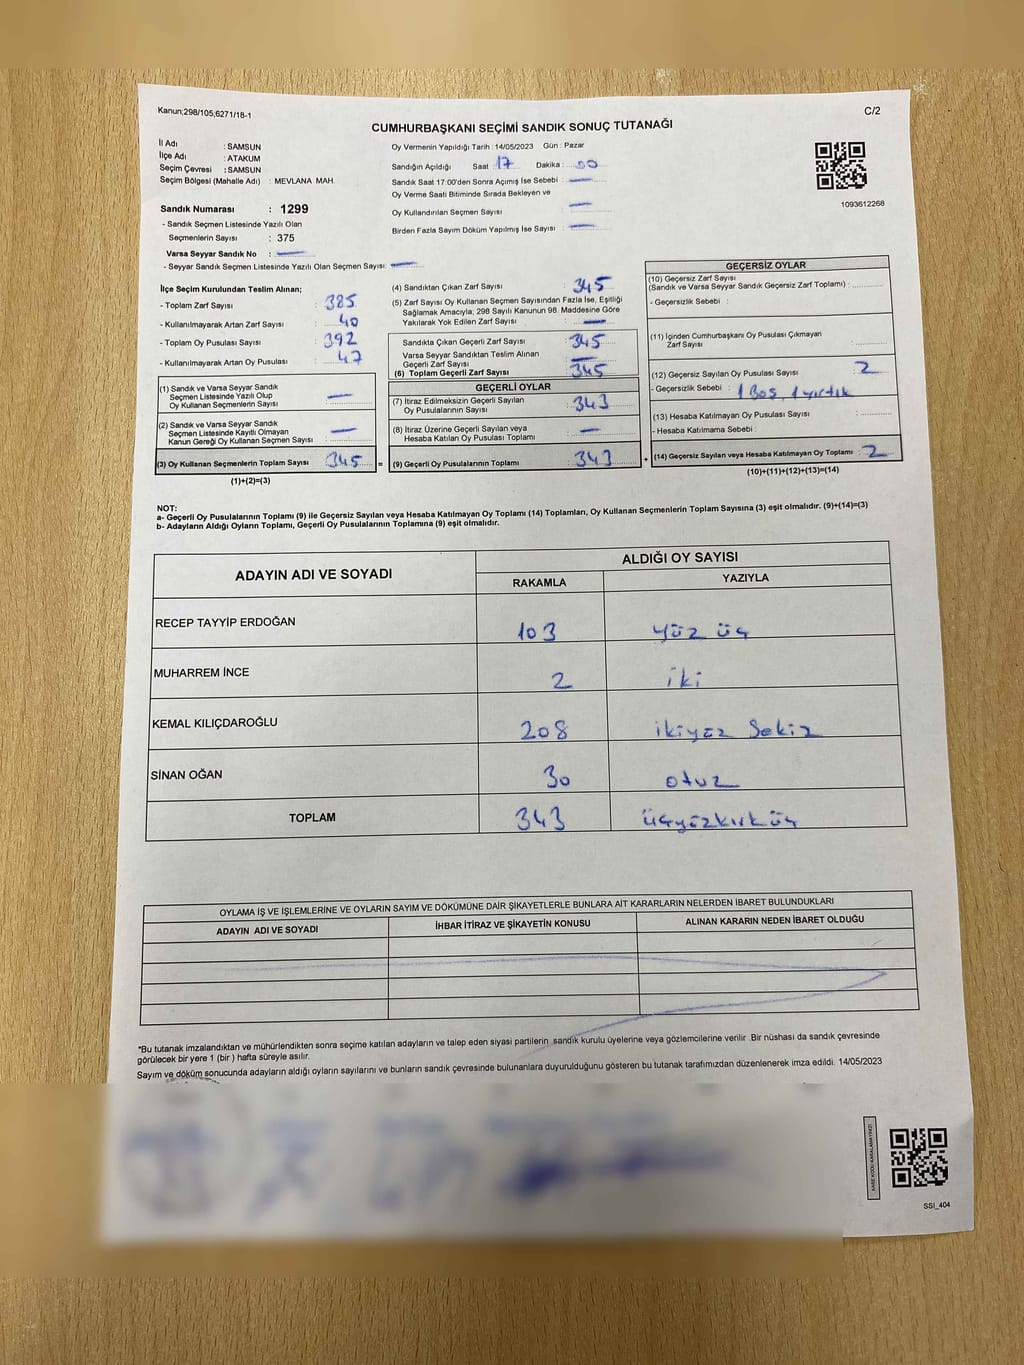 Kanun;298/105;6271/18-1
C/2
CUMHURBAŞKANI SEÇİMİ SANDIK SONUÇ TUTANAĞI
İl Adı : SAMSUN
İlçe Adı : ATAKUM
Seçim Çevresi : SAMSUN
Seçim Bölgesi (Mahalle Adı) : MEVLANA MAH.
Oy Vermenin Yapıldığı Tarih : 14/05/2023 Gün : Pazar
Sandığın Açıldığı Saat 17 Dakika : 00
Sandık Saat 17:00'den Sonra Açımış İse Sebebi : —
Oy Verme Saati Bitiminde Sırada Bekleyen ve
Oy Kullandırılan Seçmen Sayısı : —
Birden Fazla Sayım Döküm Yapılmış İse Sayısı : —
1093612268
Sandık Numarası : 1299
- Sandık Seçmen Listesinde Yazılı Olan
Seçmenlerin Sayısı : 375
Varsa Seyyar Sandık No : —
- Seyyar Sandık Seçmen Listesinde Yazılı Olan Seçmen Sayısı: —
İlçe Seçim Kurulundan Teslim Alınan;
- Toplam Zarf Sayısı : 385
- Kullanılmayarak Artan Zarf Sayısı : 40
- Toplam Oy Pusulası Sayısı : 392
- Kullanılmayarak Artan Oy Pusulası : 47
(1) Sandık ve Varsa Seyyar Sandık
Seçmen Listesinde Yazılı Olup
Oy Kullanan Seçmenlerin Sayısı : —
(2) Sandık ve Varsa Seyyar Sandık
Seçmen Listesinde Kayıtlı Olmayan
Kanun Gereği Oy Kullanan Seçmen Sayısı : —
(3) Oy Kullanan Seçmenlerin Toplam Sayısı : 345 =
(1)+(2)=(3)
(4) Sandıktan Çıkan Zarf Sayısı : 345
(5) Zarf Sayısı Oy Kullanan Seçmen Sayısından Fazla İse, Eşitliği
Sağlamak Amacıyla; 298 Sayılı Kanunun 98. Maddesine Göre
Yakılarak Yok Edilen Zarf Sayısı : —
Sandıkta Çıkan Geçerli Zarf Sayısı : 345
Varsa Seyyar Sandıktan Teslim Alınan
Geçerli Zarf Sayısı : —
(6) Toplam Geçerli Zarf Sayısı : 345
GEÇERLİ OYLAR
(7) İtiraz Edilmeksizin Geçerli Sayılan
Oy Pusulalarının Sayısı : 343
(8) İtiraz Üzerine Geçerli Sayılan veya
Hesaba Katılan Oy Pusulası Toplamı : —
(9) Geçerli Oy Pusulalarının Toplamı : 343 +
GEÇERSİZ OYLAR
(10) Geçersiz Zarf Sayısı
(Sandık ve Varsa Seyyar Sandık Geçersiz Zarf Toplamı) :
- Geçersizlik Sebebi :
(11) İçinden Cumhurbaşkanı Oy Pusulası Çıkmayan
Zarf Sayısı :
(12) Geçersiz Sayılan Oy Pusulası Sayısı : 2
- Geçersizlik Sebebi : 1 Boş, 1 yırtık
(13) Hesaba Katılmayan Oy Pusulası Sayısı :
- Hesaba Katılmama Sebebi :
(14) Geçersiz Sayılan veya Hesaba Katılmayan Oy Toplamı : 2
(10)+(11)+(12)+(13)=(14)
NOT:
a- Geçerli Oy Pusulalarının Toplamı (9) ile Geçersiz Sayılan veya Hesaba Katılmayan Oy Toplamı (14) Toplamları, Oy Kullanan Seçmenlerin Toplam Sayısına (3) eşit olmalıdır. (9)+(14)=(3)
b- Adayların Aldığı Oyların Toplamı, Geçerli Oy Pusulalarının Toplamına (9) eşit olmalıdır.
ADAYIN ADI VE SOYADI
ALDIĞI OY SAYISI
RAKAMLA YAZIYLA
RECEP TAYYİP ERDOĞAN 103 yüz üç
MUHARREM İNCE 2 iki
KEMAL KILIÇDAROĞLU 208 ikiyüz Sekiz
SİNAN OĞAN 30 otuz
TOPLAM 343 üçyüzkırküç
OYLAMA İŞ VE İŞLEMLERİNE VE OYLARIN SAYIM VE DÖKÜMÜNE DAİR ŞİKAYETLERLE BUNLARA AİT KARARLARIN NELERDEN İBARET BULUNDUKLARI
ADAYIN ADI VE SOYADI İHBAR İTİRAZ VE ŞİKAYETİN KONUSU ALINAN KARARIN NEDEN İBARET OLDUĞU
*Bu tutanak imzalandıktan ve mühürlendikten sonra seçime katılan adayların ve talep eden siyasi partilerin ,sandık kurulu üyelerine veya gözlemcilerine verilir .Bir nüshası da sandık çevresinde
görülecek bir yere 1 (bir ) hafta süreyle asılır.
Sayım ve döküm sonucunda adayların aldığı oyların sayılarını ve bunların sandık çevresinde bulunanlara duyurulduğunu gösteren bu tutanak tarafımızdan düzenlenerek imza edildi. 14/05/2023
SSI_404